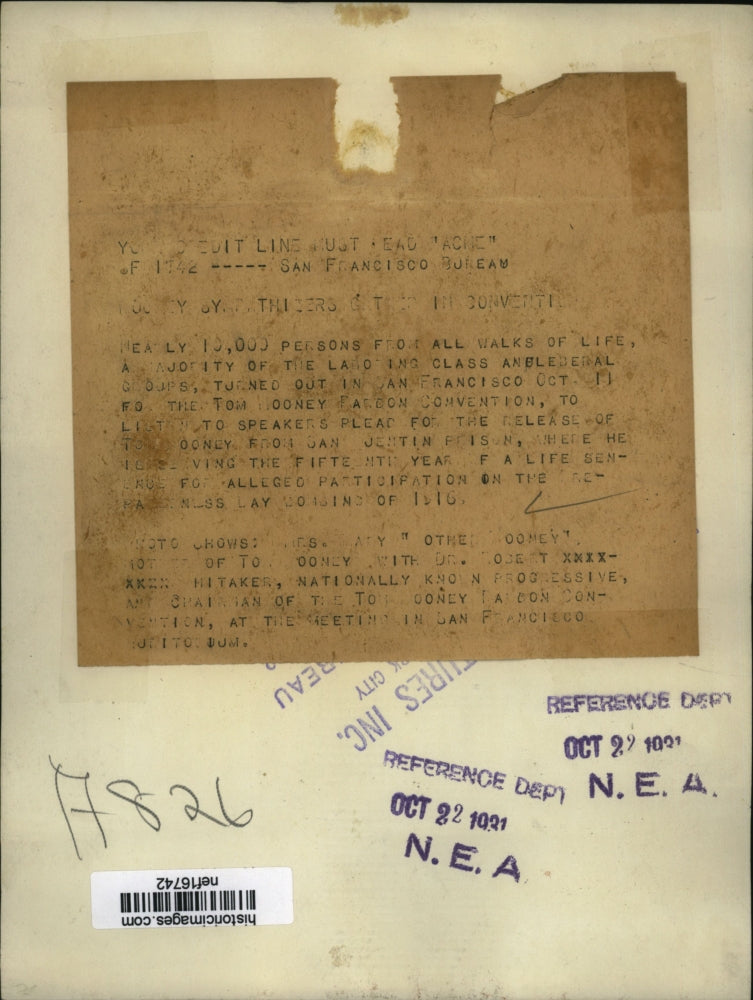 CREDIT LINE MUST READ "ACME"
SF 1742 ----- SAN FRANCISCO BUREAU
MOONEY SYMPATHIZERS GATHER IN CONVENTION
NEARLY 10,000 PERSONS FROM ALL WALKS OF LIFE,
A MAJORITY OF THE LABORING CLASS
GROUPS, TURNED OUT IN SAN FRANCISCO OCT. 11
FOR THE TOM MOONEY PARDON CONVENTION, TO
LISTEN TO SPEAKERS PLEAD FOR THE RELEASE OF
TOM MOONEY FROM SAN QUENTIN PRISON, WHERE HE
IS SERVING THE FIFTEENTH YEAR OF A LIFE SEN-
ENCE FOR ALLEGED PARTICIPATION ON THE PRE-
PAREDNESS DAY BOMBING OF 1916.
PHOTO SHOWS: MRS. MARY "MOTHER MOONEY",
MOTHER OF TOM MOONEY WITH DR. ROBERT XXXX-
XXXX WHITAKER, NATIONALLY KNOWN PROGRESSIVE,
AND CHAIRMAN OF THE TOM MOONEY PARDON CON-
VENTION, AT THE MEETING IN SAN FRANCISCO
TURES INC.
REAU
RK CITY
REFERENCE DEPT
OCT 22 1931
N. E. A.
REFERENCE DEPT
OCT 22 1931
N. E. A
7826
historicimages.com
nef16742